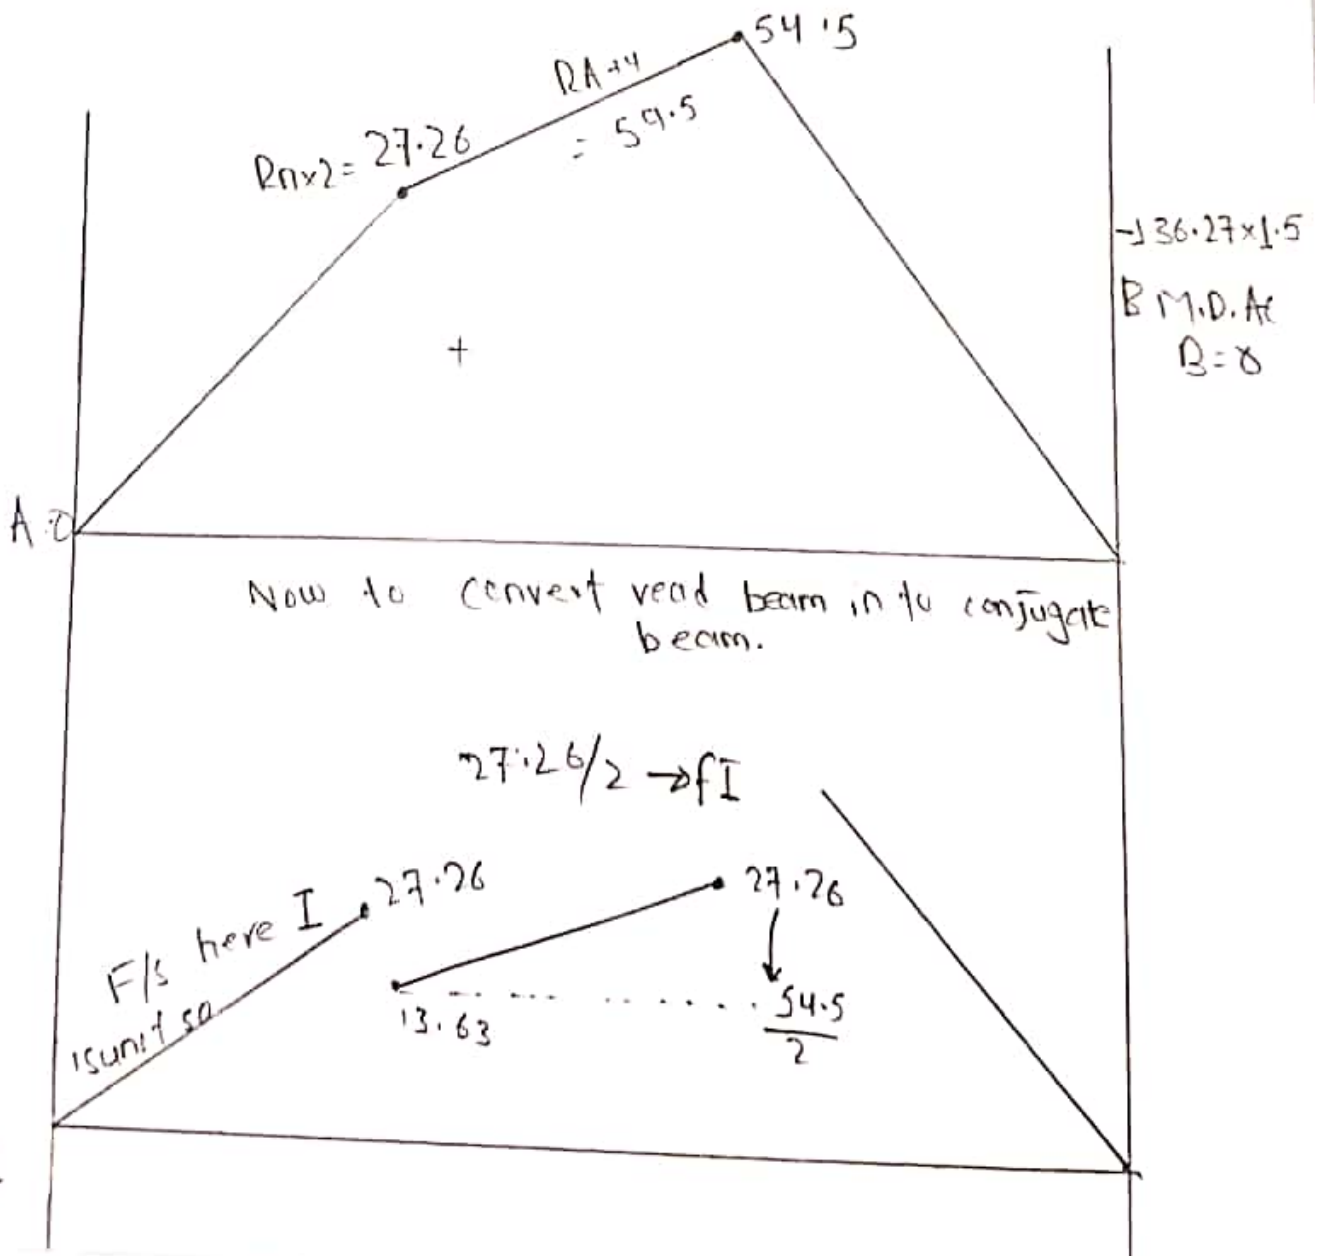 54.5
RA×4
= 59.5
RA×2= 27.26
→ 36.27×1.5
B M.D. At
B=0
+
A=0
Now to convert read beam in to conjugate
beam.
27.26/2 → fI
27.26
F/s here I
isunit so
27.26
13.63
54.5
2